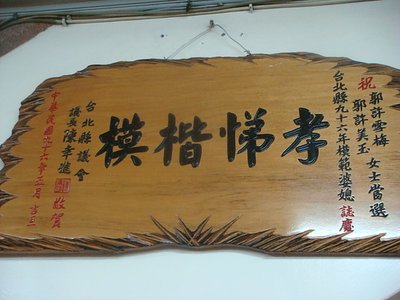 祝
郭許雪梅
郭許美玉 女士當選
台北縣九十六年模範婆媳 誌慶
孝悌楷模
台北縣議會
議長 陳幸進 敬賀
中華民國九十六年五月吉旦